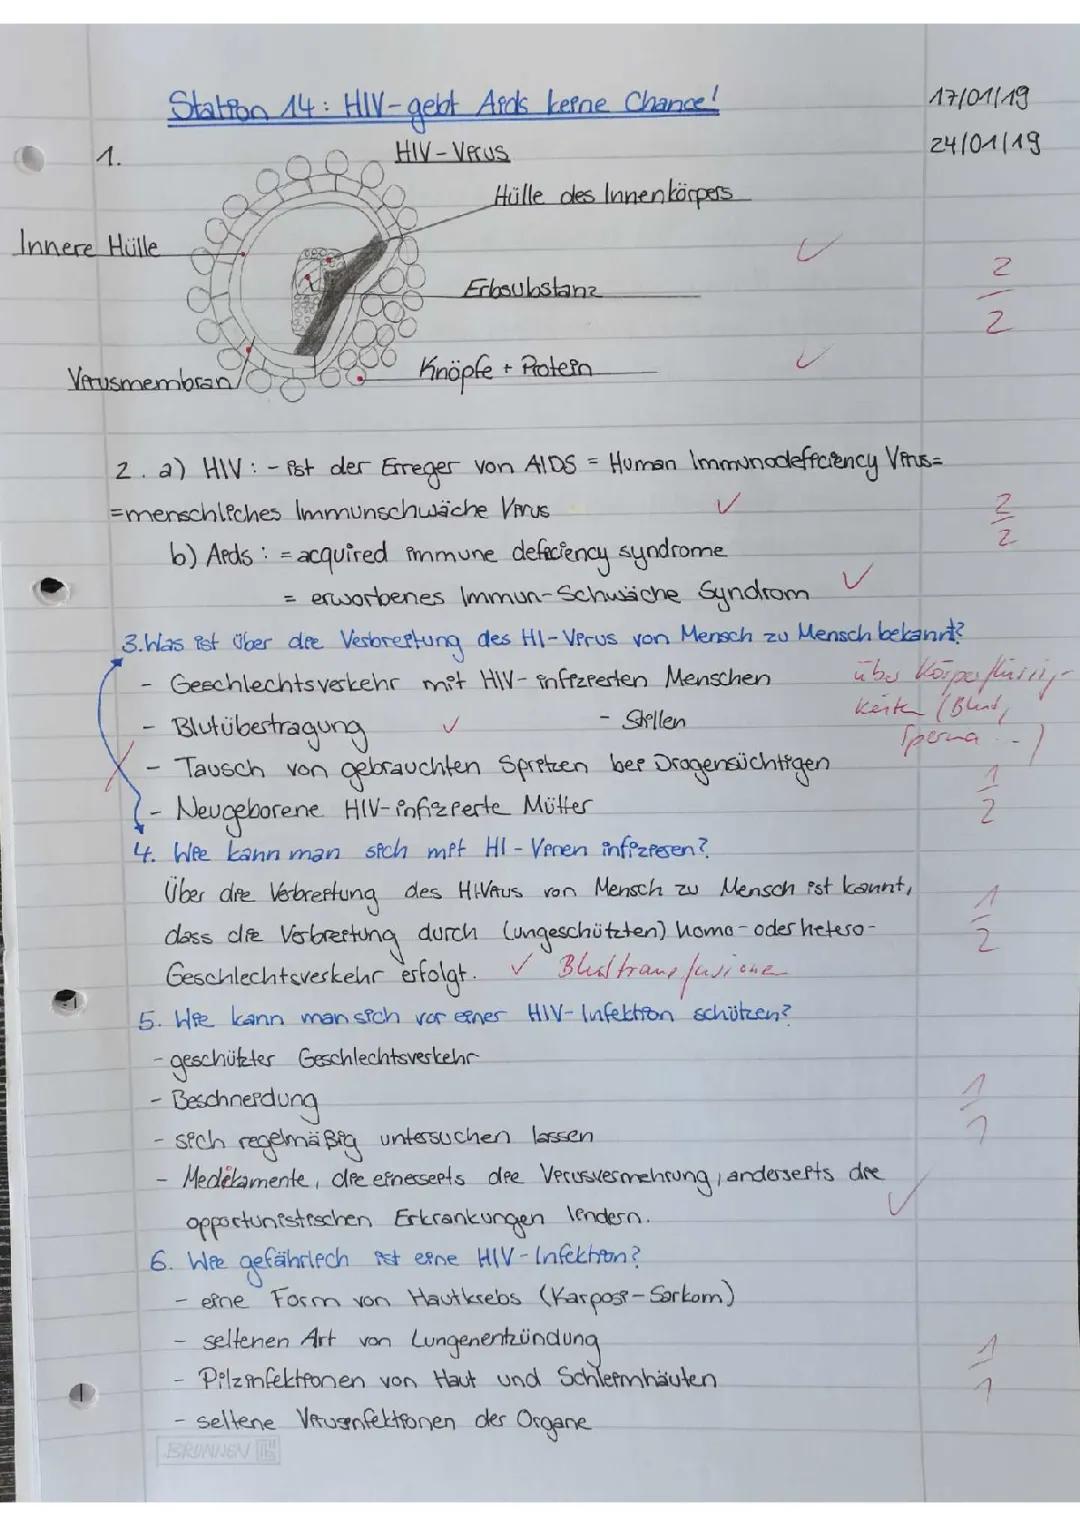 Station 14: HIV-gebt Aids keine Chance!
17/01/19
24/01/19
1.
HIV-Virus
Hülle des Innenkörpers
Innere Hülle
Erbsubstanz
2/2
Virusmembran
Knöpfe + Protein
2. a) HIV: - ist der Erreger von AIDS = Human Immunodefficiency Virus=
=menschliches Immunschwäche Virus
2/2
b) Aids: = acquired immune deficiency syndrome
= erworbenes Immun-Schwäche Syndrom
3. Was ist über die Verbreitung des HI-Virus von Mensch zu Mensch bekannt?
- Geschlechtsverkehr mit HIV-infizierten Menschen
über Körperflüssig-
keiten (Blut,
Sperma ...)
- Blutübertragung
- Stillen
- Tausch von gebrauchten Spritzen bei Drogensüchtigen
- Neugeborene HIV-infizierte Mütter
1/2
4. Wie kann man sich mit HI-Viren infizieren?
Über die Verbreitung des HIVirus von Mensch zu Mensch ist kannt,
dass die Verbreitung durch (ungeschützten) homo- oder hetero-
Geschlechtsverkehr erfolgt.
Bluttransfusionen
1/2
5. Wie kann man sich vor einer HIV-Infektion schützen?
- geschützter Geschlechtsverkehr
- Beschneidung
- sich regelmäßig untersuchen lassen
- Medikamente, die einerseits die Virusvermehrung, anderseits die
opportunistischen Erkrankungen lindern.
1/1
6. Wie gefährlich ist eine HIV-Infektion?
- eine Form von Hautkrebs (Karposi-Sarkom)
- seltenen Art von Lungenentzündung
- Pilzinfektionen von Haut und Schleimhäuten
- seltene Virusinfektionen der Organe
1/1
BRUNNEN